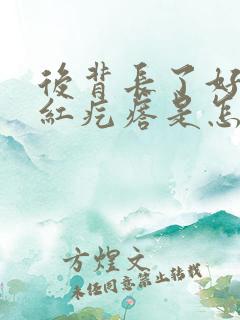 後背長了好
紅疙瘩是怎
方煌文
未经同意禁止转载